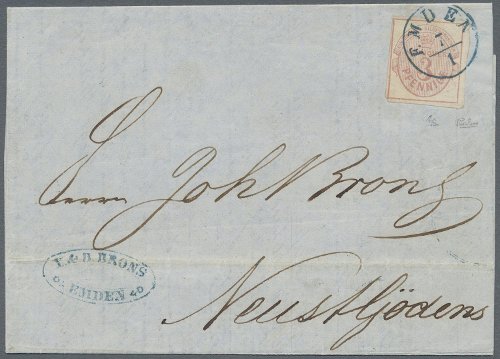 EMDEN
17/1
3
PFENNIG
Herrn Joh Brons
Y. & B. BRONS
EMDEN
Neustgödens